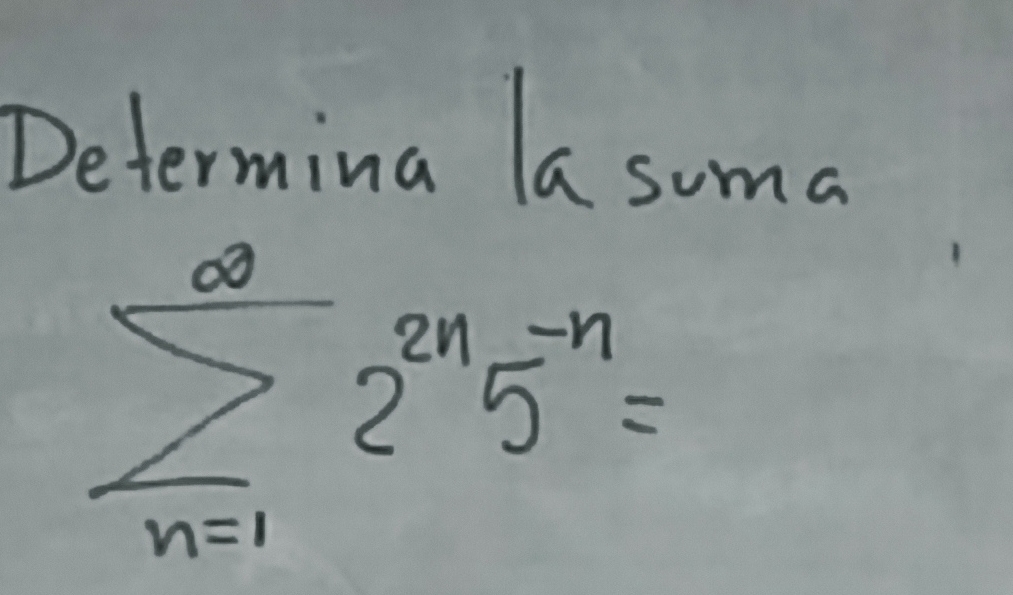 Determina la suma
∞
∑ 2^{2n} 5^{-n} =
n=1